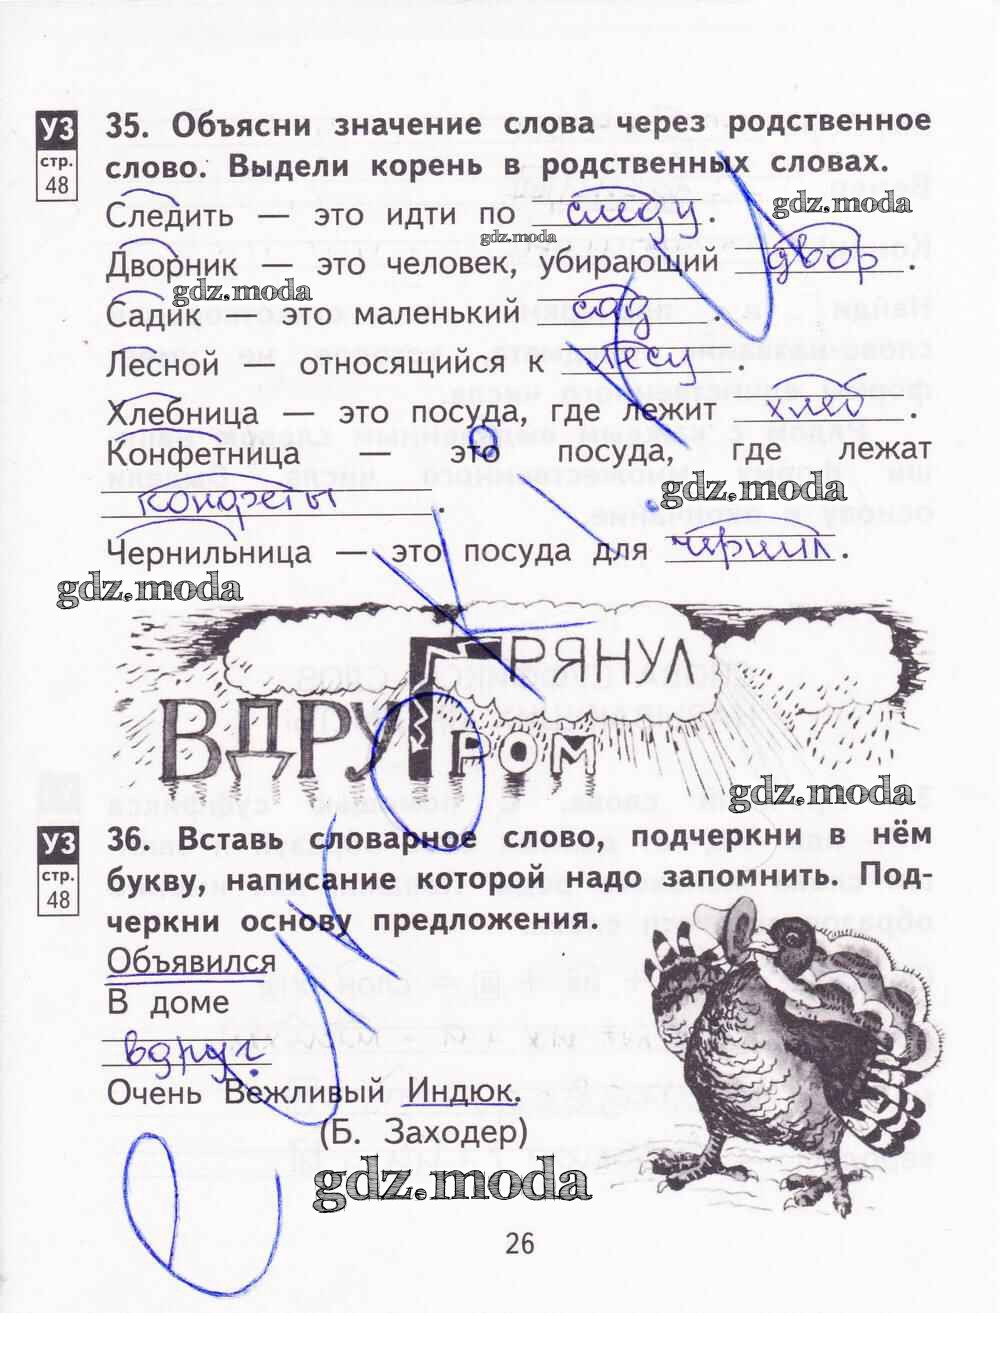 УЗ
стр.
48
35. Объясни значение слова через родственное
слово. Выдели корень в родственных словах.
Следить — это идти по следу.
gdz.moda
gdz.moda
Дворник — это человек, убирающий двор.
gdz.moda
Садик — это маленький сад.
Лесной — относящийся к лесу.
Хлебница — это посуда, где лежит хлеб.
Конфетница — это посуда, где лежат
конфеты.
gdz.moda
Чернильница — это посуда для чернил.
gdz.moda
ВДРУГ ГРЯНУЛ
ГРОМ
gdz.moda
УЗ
стр.
48
36. Вставь словарное слово, подчеркни в нём
букву, написание которой надо запомнить. Под-
черкни основу предложения.
Объявился
В доме
вдруг
Очень Вежливый Индюк.
(Б. Заходер)
gdz.moda
26